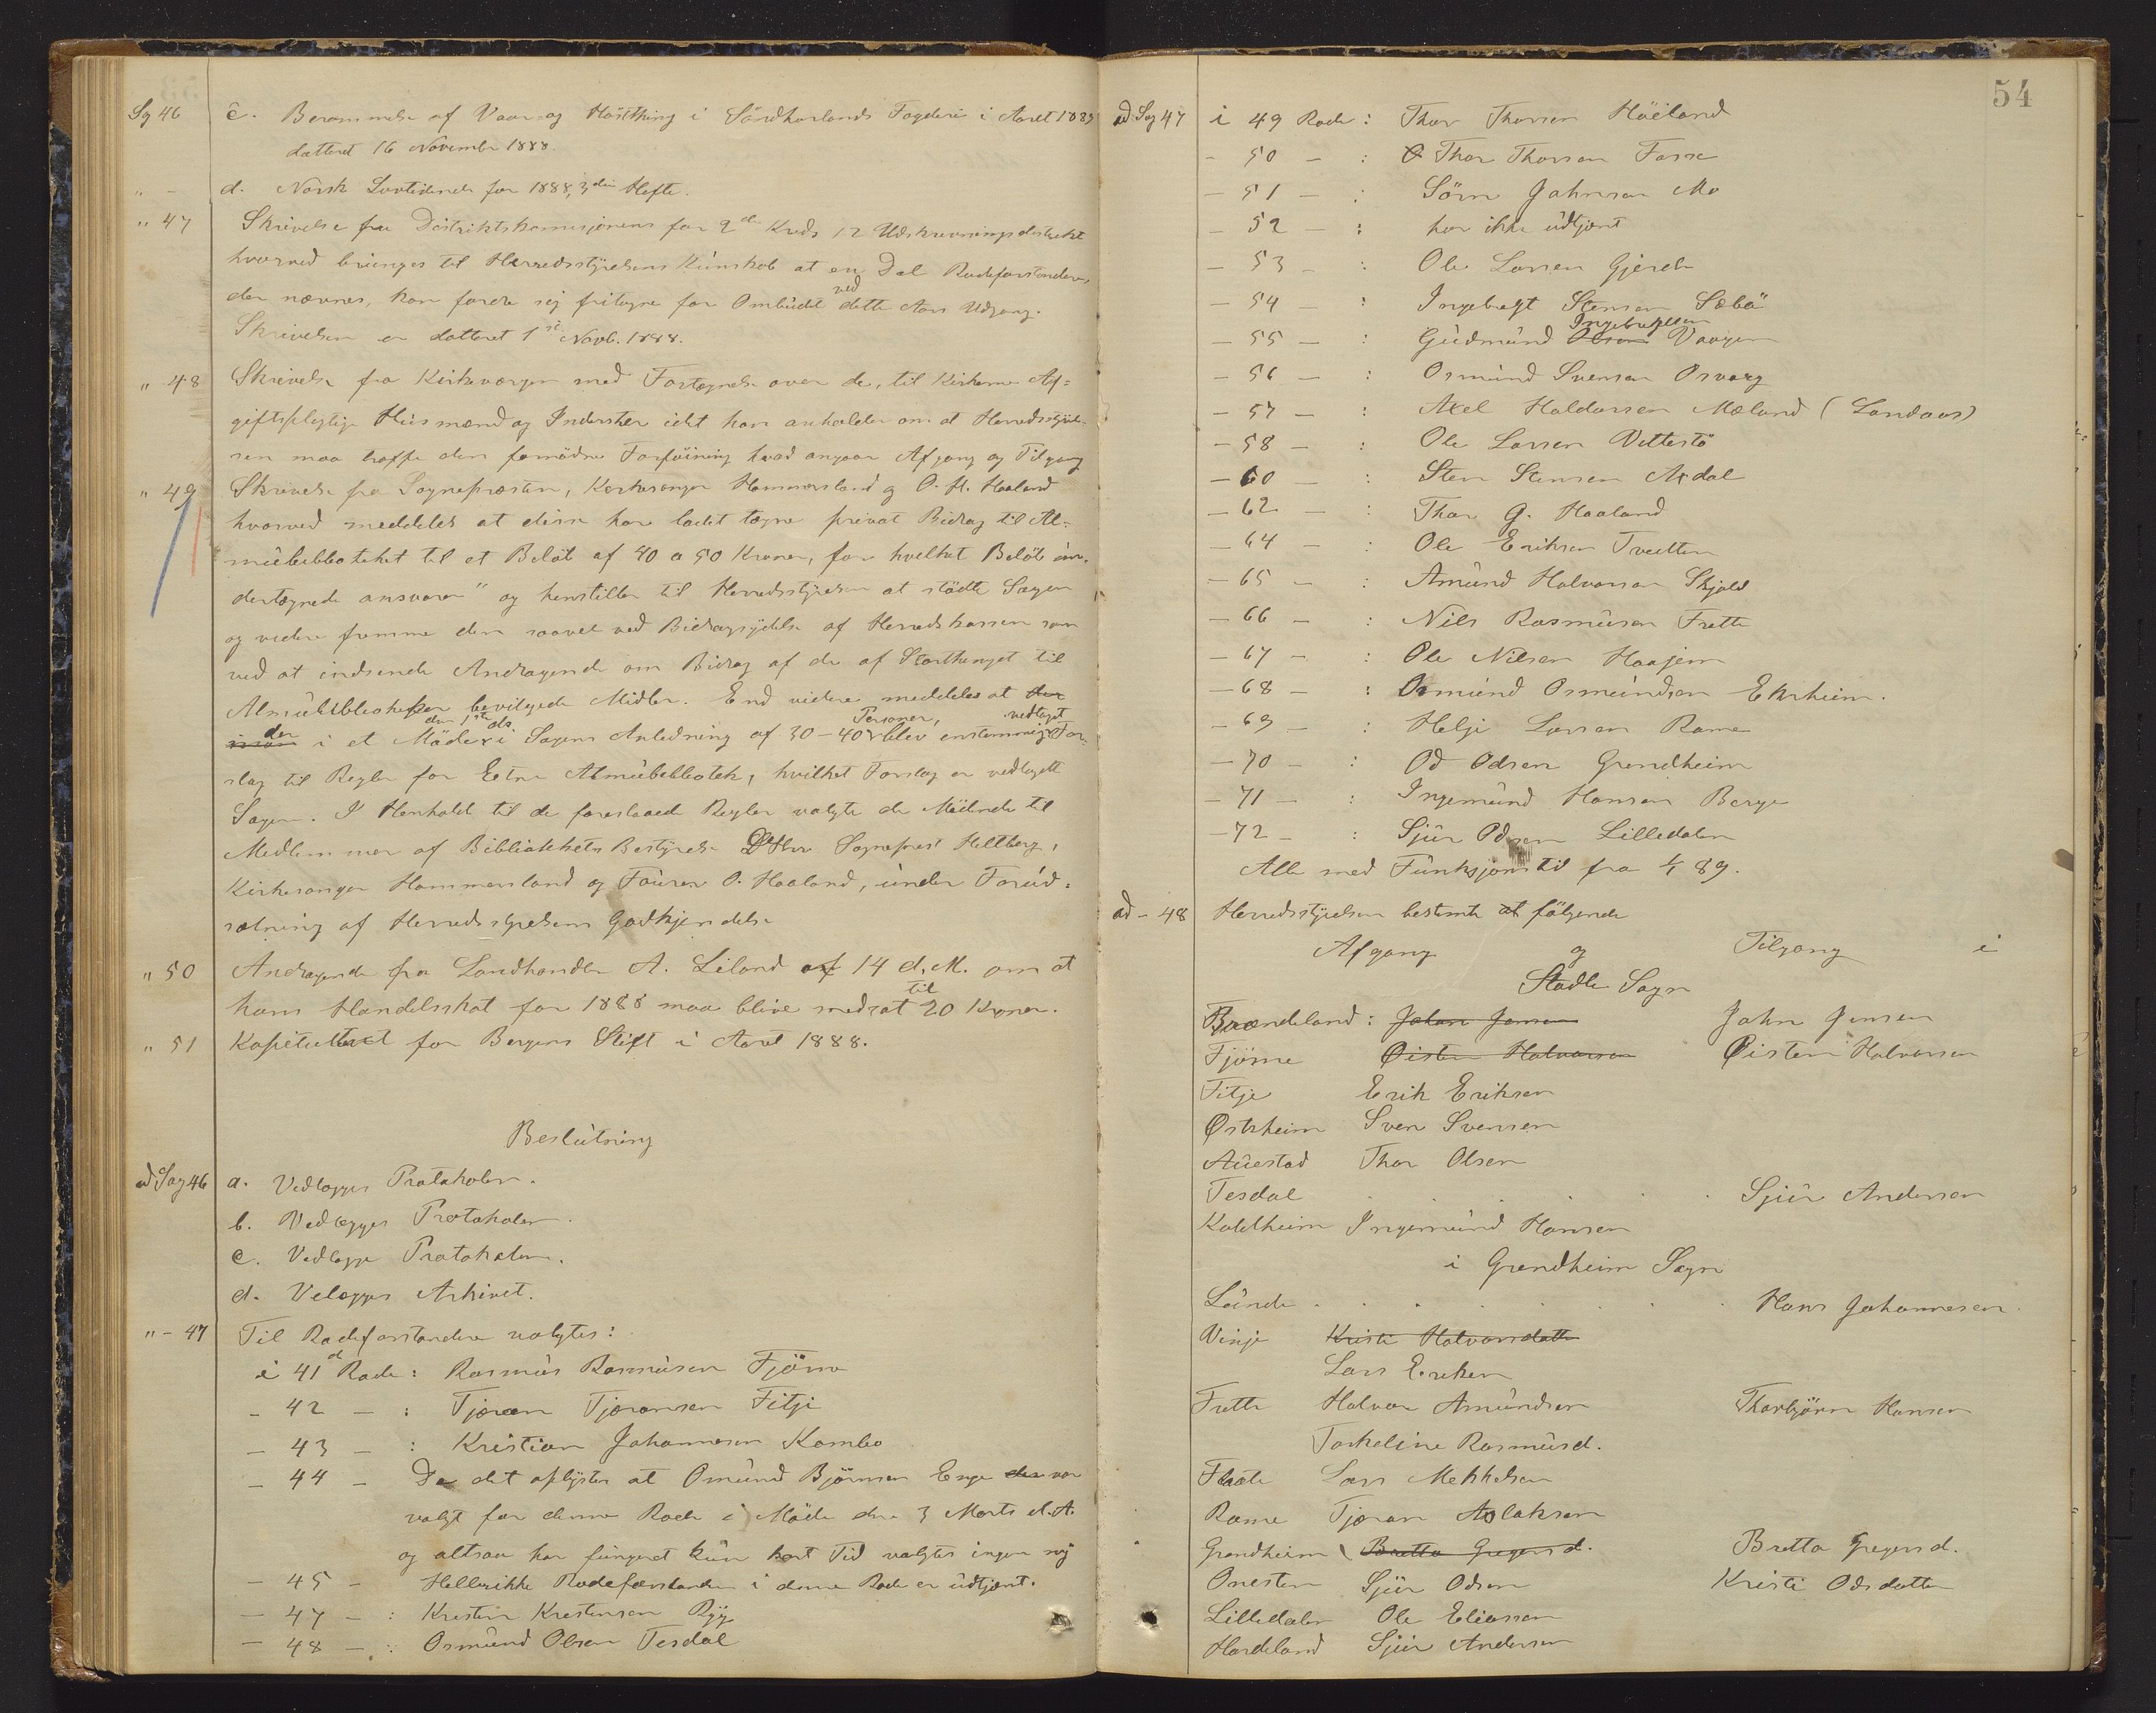 Sag 46 c. Berammelse af Vaar og Høstthing i Söndhorlands Fogderi i Aaret 1889
datteret 16 November 1888.
" - d. Norsk Lovtidende for 1888, 3die Hefte.
" 47 Skrivelse fra Distriktskomisjonens for 2de Kreds 12 Udskrivningsdistrikt
hvorved bringes til Herredsstÿrelsens Kúnskab at en Del Rodeforstandere,
der nævnes, kan fordre sig fritagne for Ombúdet ved dette Aars Udgang.
Skrivelsen er datteret 1ste Novb. 1888.
" 48 Skrivelse fra Kirkeværgen med Fortegnelse over de, til Kirkerne Af=
giftspligtige Húsmænd og Inderster idet han anholder om at Herredsstÿrel-
sen maa træffe den fornödne Forföining hvad angaar Afgang og Tilgang
" 49 Skrivelse fra Sognepræsten, Kirkesanger Hammersland og O. H. Haaland
hvorved meddeles at disse har ladet tegne privat Bidrag til Al-
múebibliotheket til et Belöb af 40 a 50 Kroner, for hvilket Belöb "ún-
dertegnede ansvarer" og henstiller til Herredsstÿrelsen at stötte Sagen
og videre fremme den saavel ved Bidragsÿdelse af Herredskassen som
ved at indsende Andragende om Bidrag af de af Storthinget til
Almúebibliotheker bevilgede Midler. End videre meddeles at
der i et Möde den 1ste ds i Sagens Anledning af 30-40 Personer, blev enstemmig vedtaget For-
slag til Regler for Etne Almúebibliotek, hvilket Forslag er vedlagt
Sagen. I Henhold til de foreslaaede Regler valgte de Mödende til
Medlemmer af Bibliotekets Bestÿrelse Hrr Sogneprest Heltberg,
Kirkesanger Hammersland og Fourer O. Haaland, únder Forúd-
sætning af Herredsstÿrelsens Godkjendelse
" 50 Andragende fra Landhandler A. Liland af 14 d. M. om at
hans Handelsskat for 1888 maa blive nedsat til 20 Kroner.
" 51 Kapiteltaxt for Bergens Stift i Aaret 1888.
Beslútning
ad Sag 46 a. Vedlægges Protokolen.
b. Vedlægges Protokolen.
c. Vedlægges Protokolen.
d. Velægges Arkivet.
" - 47 Til Rodeforstandere valgtes:
i 41de Rode: Rasmús Rasmúsen Fjösne
- 42 - : Tjæran Tjæransen Fitje
- 43 - : Kristian Johannesen Kambo
- 44 - Da det oplÿstes at Omúnd Björnsen Enge var
valgt for denne Rode i Möde den 3 Marts d. A.
og altsaa har fúngeret kún kort Tid valgtes ingen nÿ
- 45 - Hellerikke Rodeforstanderen i denne Rode er údtjent.
- 47 - : Kristen Kristensen Rÿg
- 48 - : Osmúnd Olsen Tesdal
54
ad Sag 47 i 49 Rode: Thor Thorsen Höiland
- 50 - : Thor Thorsen Fosse
- 51 - : Sörn Johnsen Mo
- 52 - : har ikke údtjent
- 53 - : Ole Larsen Gjerde
- 54 - : Ingebrigt Stensen Sæbö
- 55 - : Gúdmúnd Olsen Ingebrigtsen Vaagen
- 56 - : Osmúnd Svensen Osvaag
- 57 - : Axel Haldorsen Mæland (Landaas)
- 58 - : Ole Larsen Vettestö
- 60 - : Sten Stensen Axdal
- 62 - : Thor G. Haaland
- 64 - : Ole Eriksen Tveitten
- 65 - : Amúnd Halvorsen Skjold
- 66 - : Nils Rasmúsen Frette
- 67 - : Ole Nilsen Haajem
- 68 - : Osmúnd Osmúndsen Ekrheim.
- 69 - : Helje Larsen Rame
- 70 - : Od Odsen Grendheim
- 71 - : Ingemúnd Hansen Berge
- 72 - : Sjúr Odsen Lilledalen
Alle med Fúnksjonstid fra 1/1 89.
ad - 48 Herredsstÿrelsen bestemte at fölgende
Afgang og Tilgang i
Stødle Sogn
Brændeland: Johan Jensen John Jensen
Fjösne Øisten Halvorsen Øisten Halvorsen
Fitje Erik Eriksen
Østrheim Sven Svensen
Aúestad Thor Olsen
Tesdal . . . . . Sjúr Andersen
Kaldheim Ingemúnd Hansen
i Grendheim Sogn
Lúnde . . . . . . . Hans Johannesen.
Vinje Kristi Halvorsdatter
Lars Eriksen
Frette Halvor Amúndsen Thorbjörn Hansen
Torkeline Rasmúsd.
Flaate Lars Mekkelsen
Rame Tjæran Aslaksen
Grendheim Bretta Gregersd. Bretta Gregersd.
Onesten Sjúr Odsen Kristi Odsdatter
Lilledalen Ole Eliassen
Hardeland Sjúr Andersen